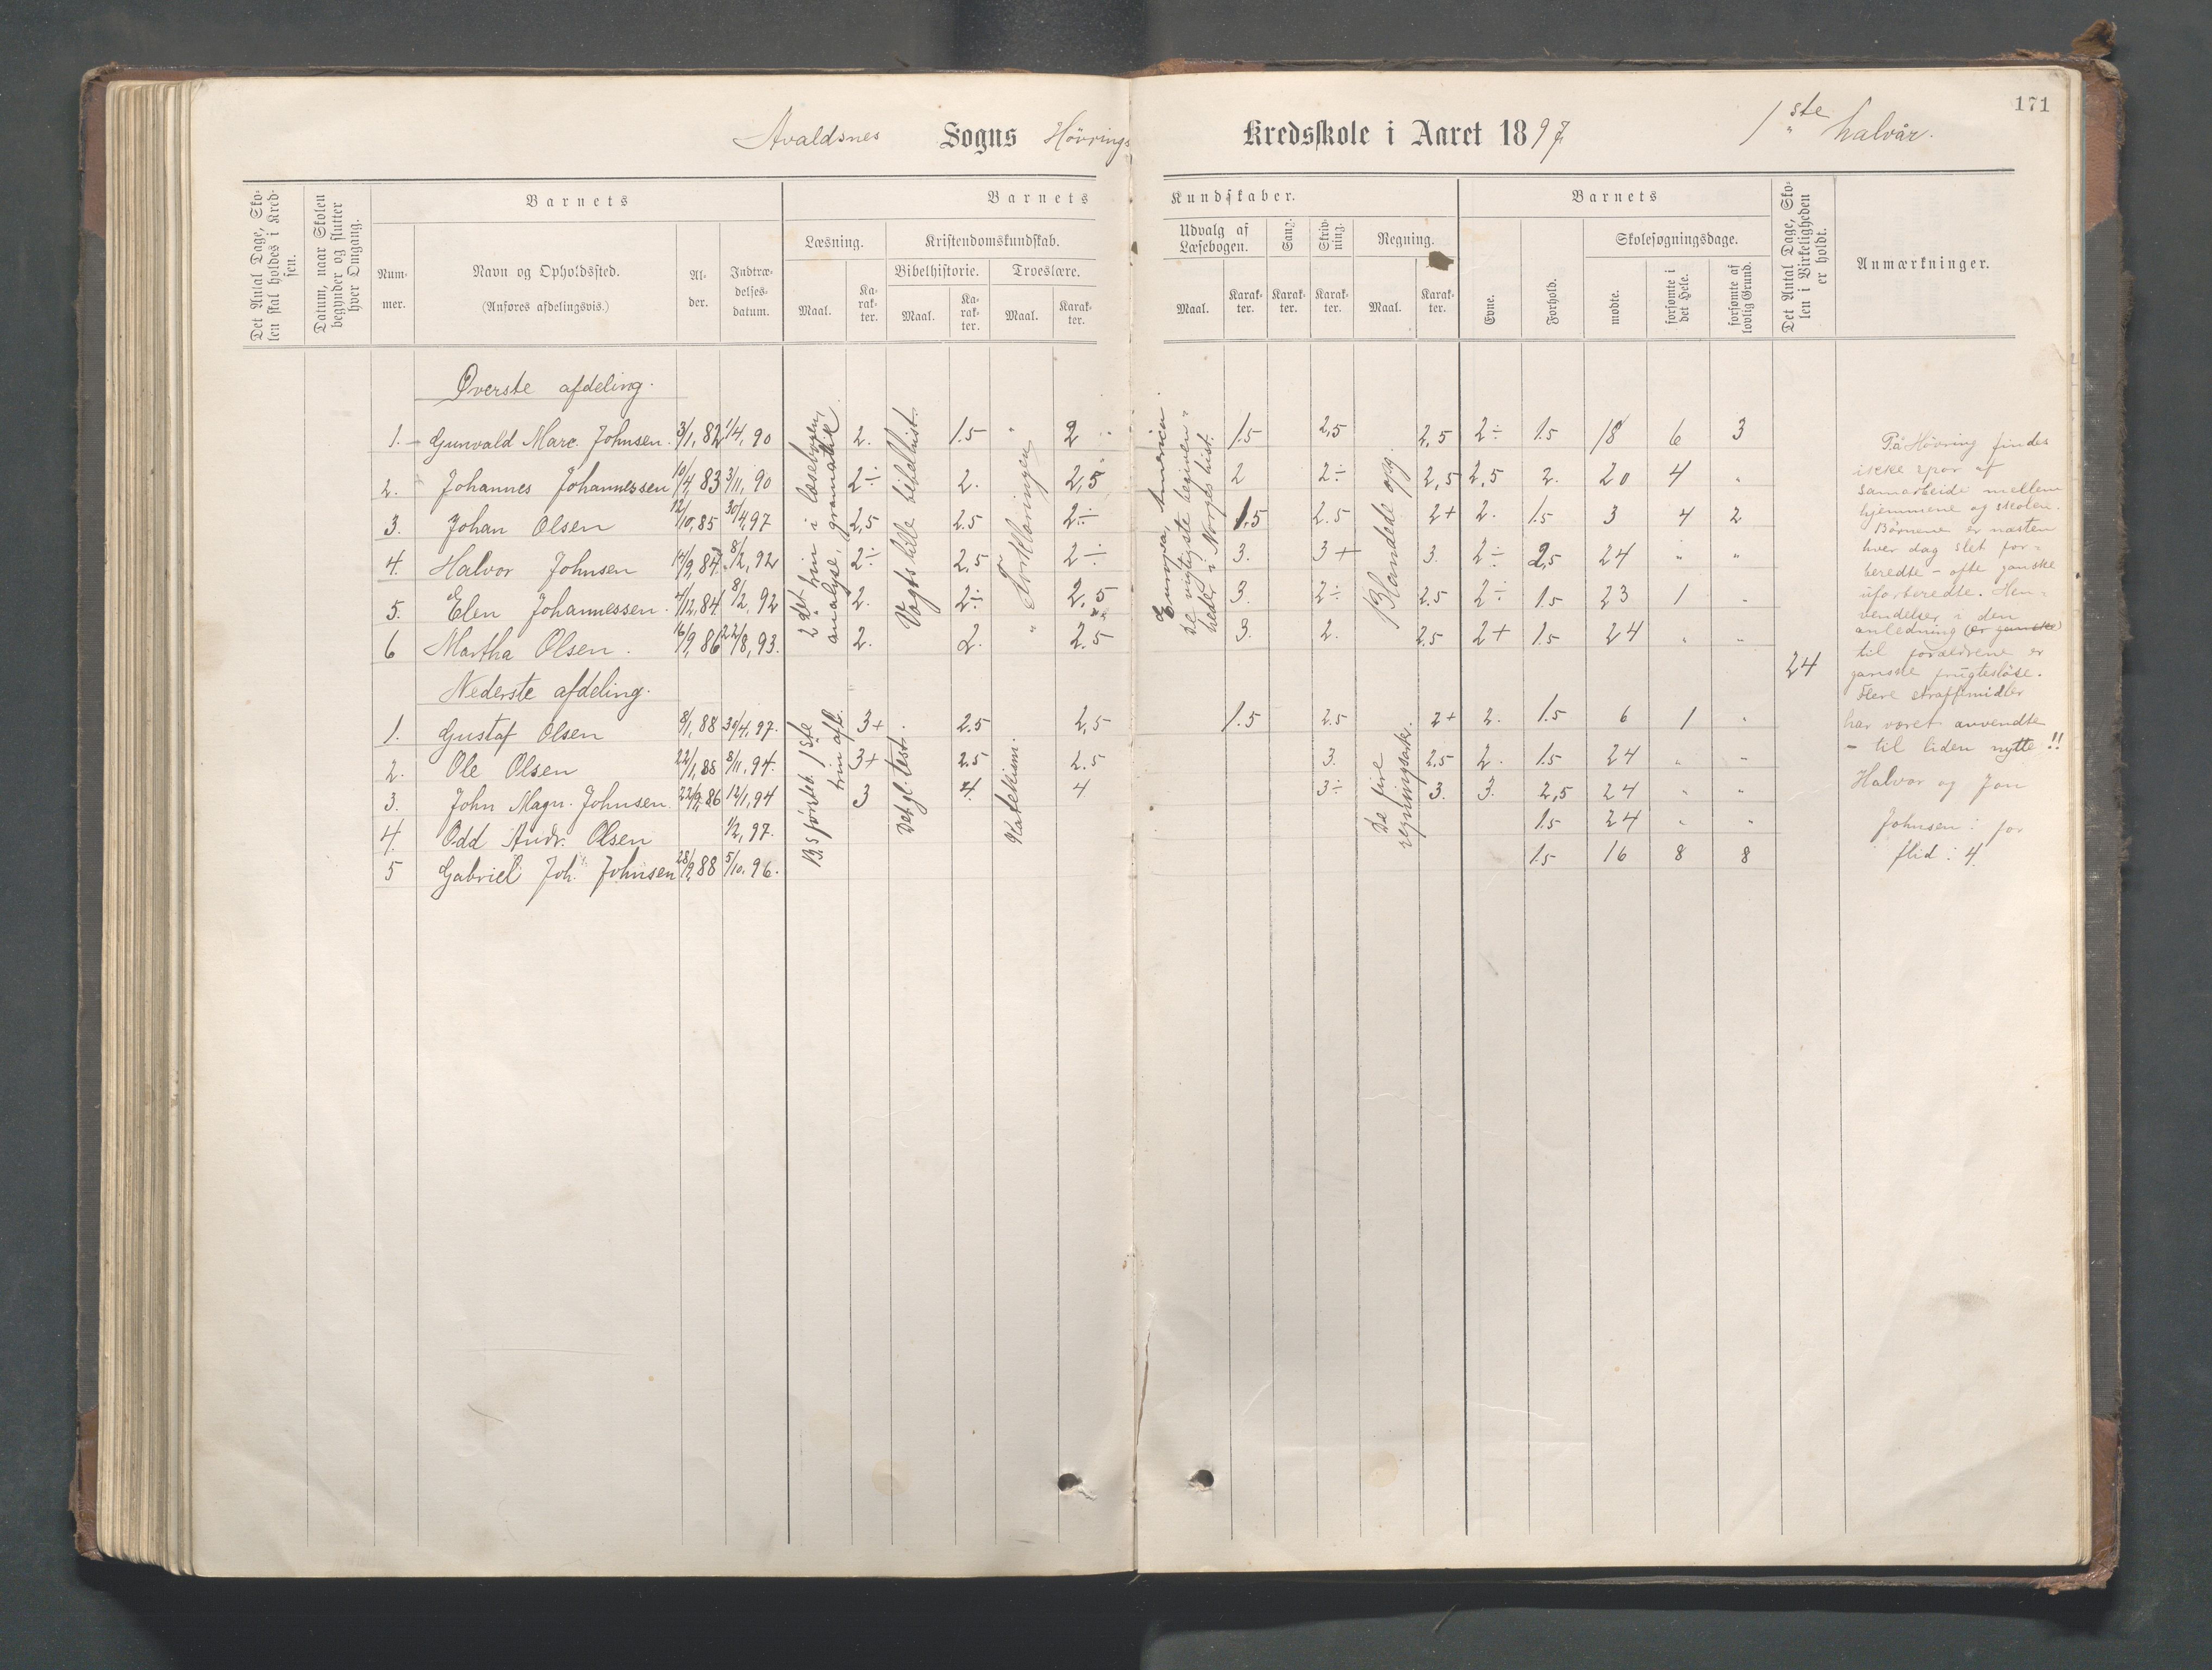 171
Avaldsnes Sogns Hövrings Kredsskole i Aaret 1897 1ste halvår.
Det Antal Dage, Sko-
len skal holdes i Kred-
sen.
Datum, naar Skolen
begynder og slutter
hver Omgang.
Barnets
Num-
mer.
Navn og Opholdssted.
(Anføres afdelingsvis.)
Al-
der.
Indtræ-
delses-
datum.
Barnets Kundskaber.
Læsning.
Maal.
Ka-
rak-
ter.
Kristendomskundskab.
Bibelhistorie.
Maal.
Ka-
rak-
ter.
Troeslære.
Maal.
Karak-
ter.
Udvalg af
Læsebogen.
Maal.
Karak-
ter.
Sang.
Karak-
ter.
Skriv-
ning.
Karak-
ter.
Regning.
Maal.
Karak-
ter.
Barnets
Evne.
Forhold.
Skolesøgningsdage.
mødte.
forsømte i
det Hele.
forsømte af
lovlig Grund.
Det Antal Dage, Sko-
len i Virkeligheden
er holdt.
Anmærkninger.
Øverste afdeling.
1. Gunvald Marc. Johnsen. 3/1, 82 1/4, 90 2. 1.5 " 2 1.5 2,5 2,5 2÷ 1.5 18 6 3
2. Johannes Johannessen 10/4, 83 3/11, 90 2÷ 2. 2,5 2 2÷ 2,5 2,5 2. 20 4 "
3. Johan Olsen 12/10, 85 30/4, 97 2,5 2.5 2÷ 1.5 2.5 2+ 2. 1.5 3 4 2
4. Halvor Johnsen 14/9, 84 8/2, 92 2÷ 2,5 2÷ 3. 3+ 3. 2÷ 2,5 24 " "
5. Elen Johannessen. 4/12, 84 8/2, 92 2. 2÷ 2,5 3. 2÷ 2.5 2÷ 1.5 23 1 "
6 Martha Olsen. 16/9, 86 22/8, 93. 2. 2. " 2.5 3. 2. 2.5 2+ 1.5 24 " "
2det trin i læsebogen,
analyse, gramatik
Vogts lille bibelhist.
Forklaringen
Europa, Amerika.
De vigtigste begiven-
heder i Norges hist.
Blandede opg.
24
Nederste afdeling.
1. Gustaf Olsen 8/1, 88 30/4, 97. 3+ 2.5 2,5 1.5 2.5 2+ 2. 1.5 6 1 "
2. Ole Olsen 22/1, 88 8/11, 94. 3+ 2.5 2.5 3. 2.5 2. 1.5 24 " "
3. John Magn. Johnsen. 22/9, 86 12/1, 94 3 4 4 3÷ 3. 3. 2,5 24 " "
4. Odd Andr. Olsen 1/2, 97. 1.5 24 " "
5 Gabriel Joh. Johnsen 28/9, 88 5/10, 96. 1.5 16 8 8
1ste
trin afl.
Det gl. test.
Katekism.
De fire
regningsark.
På Hövring findes
ikke spor af
samarbeide mellem
hjemmene og skolen.
Börnene er næsten
hver dag slet for-
beredte - ofte ganske
uforberedte. Hen-
vendelser i den
anledning (er ganske)
til forældrene er
ganske frugtesløse.
Flere straffemidler
har været anvendte
- til liden nytte!!
Halvor og Jon
Johnsen: for
flid: 4.